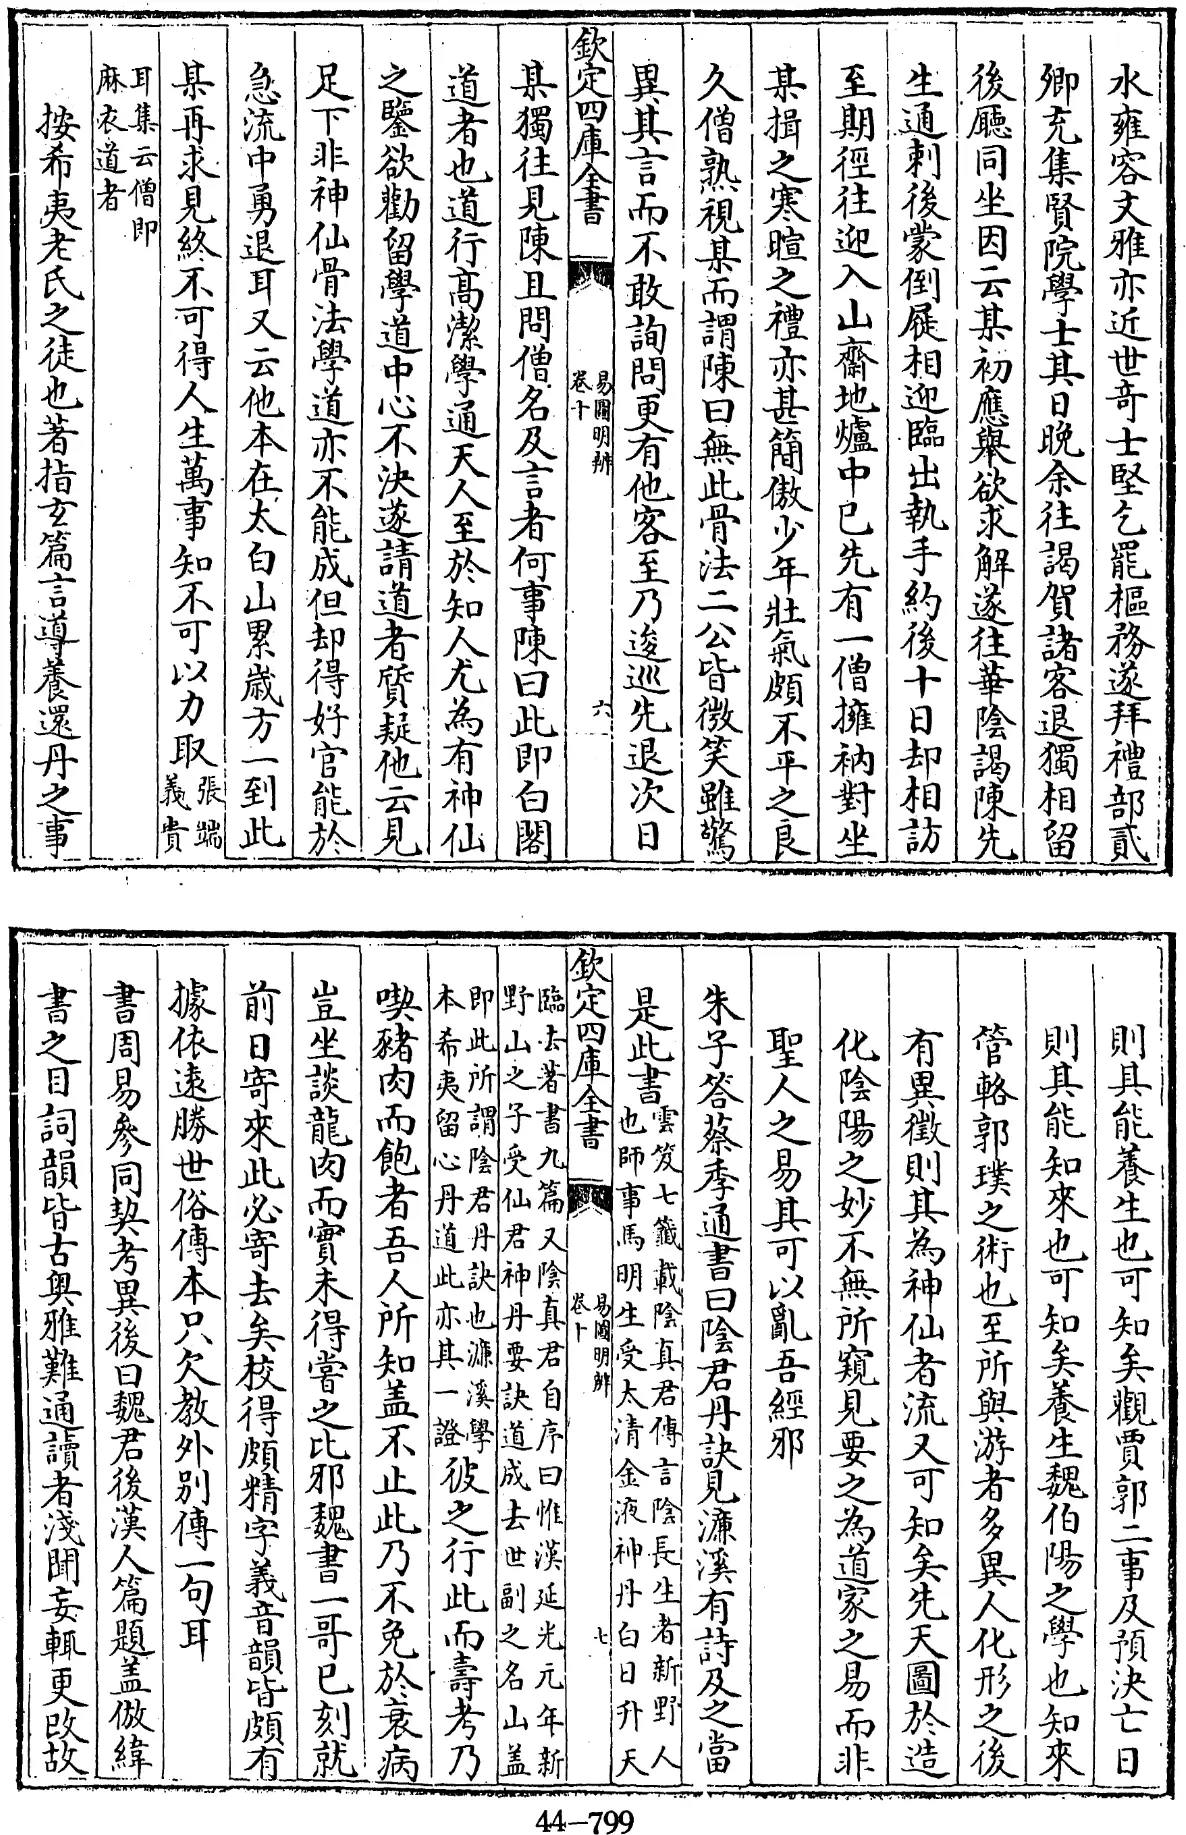 水雍容文雅亦近世竒士堅乞罷樞務遂拜禮部貳
卿充集賢院學士其日晚余往謁賀諸客退獨相留
後廳同坐因云某初應舉欲求解遂往華陰謁陳先
生通刺後蒙倒屣相迎臨出執手約後十日却相訪
至期徑往迎入山齋地爐中已先有一僧擁衲對坐
某揖之寒暄之禮亦甚簡傲少年壯氣頗不平之良
久僧熟視某而謂陳曰無此骨法二公皆微笑雖驚
異其言而不敢詢問更有他客至乃逡巡先退次日
欽定四庫全書
易圖明辨
卷十
六
某獨往見陳且問僧名及言者何事陳曰此即白閣
道者也道行髙潔學通天人至於知人尤為有神仙
之鑒欲勸留學道中心不決遂請道者質疑他云見
足下非神仙骨法學道亦不能成但却得好官能於
急流中勇退耳又云他本在太白山累歲方一到此
某再求見終不可得人生萬事知不可以力取張端
義貴
耳集云僧即
麻衣道者
按希夷老氏之徒也著指玄篇言導養還丹之事
則其能養生也可知矣觀賈郭二事及預決亡日
則其能知來也可知矣養生魏伯陽之學也知來
管輅郭璞之術也至所與游者多異人化形之後
有異徵則其為神仙者流又可知矣先天圖於造
化陰陽之妙不無所窺見要之為道家之易而非
聖人之易其可以亂吾經邪
朱子答蔡季通書曰陰君丹訣見濓溪有詩及之當
是此書雲笈七籤載陰真君傳言陰長生者新野人
也師事馬明生受太清金液神丹白日升天
欽定四庫全書
易圖明辨
卷十
七
臨去著書九篇又陰真君自序曰惟漢延光元年新
野山之子受仙君神丹要訣道成去世副之名山盖
即此所謂陰君丹訣也濓溪學
本希夷留心丹道此亦其一證彼之行此而壽考乃
喫豬肉而飽者吾人所知盖不止此乃不免於衰病
豈坐談龍肉而實未得嘗之比邪魏書一哥已刻就
前日寄來此必寄去矣校得頗精字義音韻皆頗有
據依遠勝世俗傳本只欠教外别傳一句耳
書周易參同契考異後曰魏君後漢人篇題盖倣緯
書之目詞韻皆古奥雅難通讀者淺聞妄輒更改故
44-799